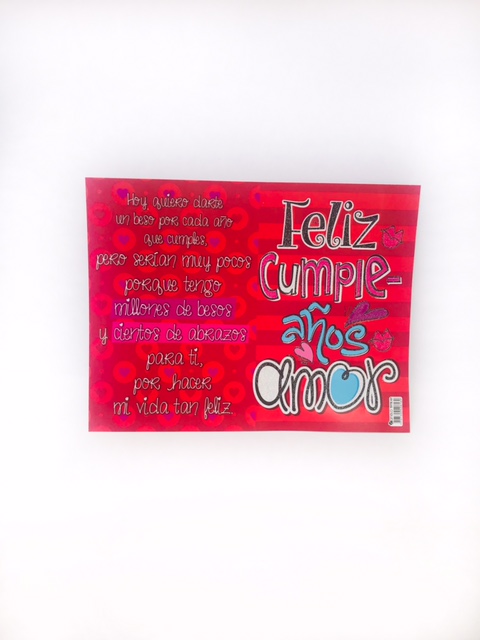 Hoy quiero darte
un beso por cada año
que cumples,
pero serían muy pocos
porque tengo
millones de besos
y cientos de abrazos
para ti,
por hacer
mi vida tan feliz.
Feliz
Cumple-
años
amor